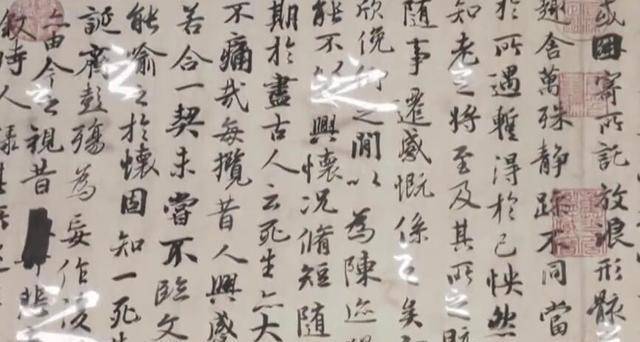 或因寄所託放浪形骸之
趣舍萬殊静躁不同當
於所遇暫得於己怏然
知老之將至及其所之既
隨事遷感慨係之矣
欣俛仰之閒以為陳迹
能不以之興懷況脩短隨
期於盡古人云死生亦大
不痛哉每攬昔人興感
若合一契未嘗不臨文
能喻之於懷固知一死生
誕齊彭殤為妄作後
由今之視昔悲
敘時人錄其所述